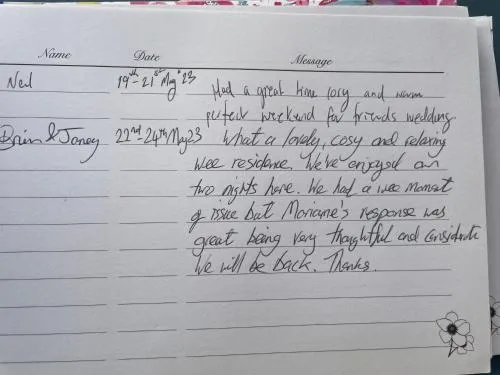 Name Date Message
Neil 19th - 21st May '23 Had a great time cosy and warm
perfect weekend for friends wedding.
Brian & Janey 22nd-24th May 23 What a lovely, cosy and relaxing
wee residence. We've enjoyed our
two nights here. We had a wee moment
of issue but Marianne's response was
great being very thoughtful and considerate
We will be back. Thanks.